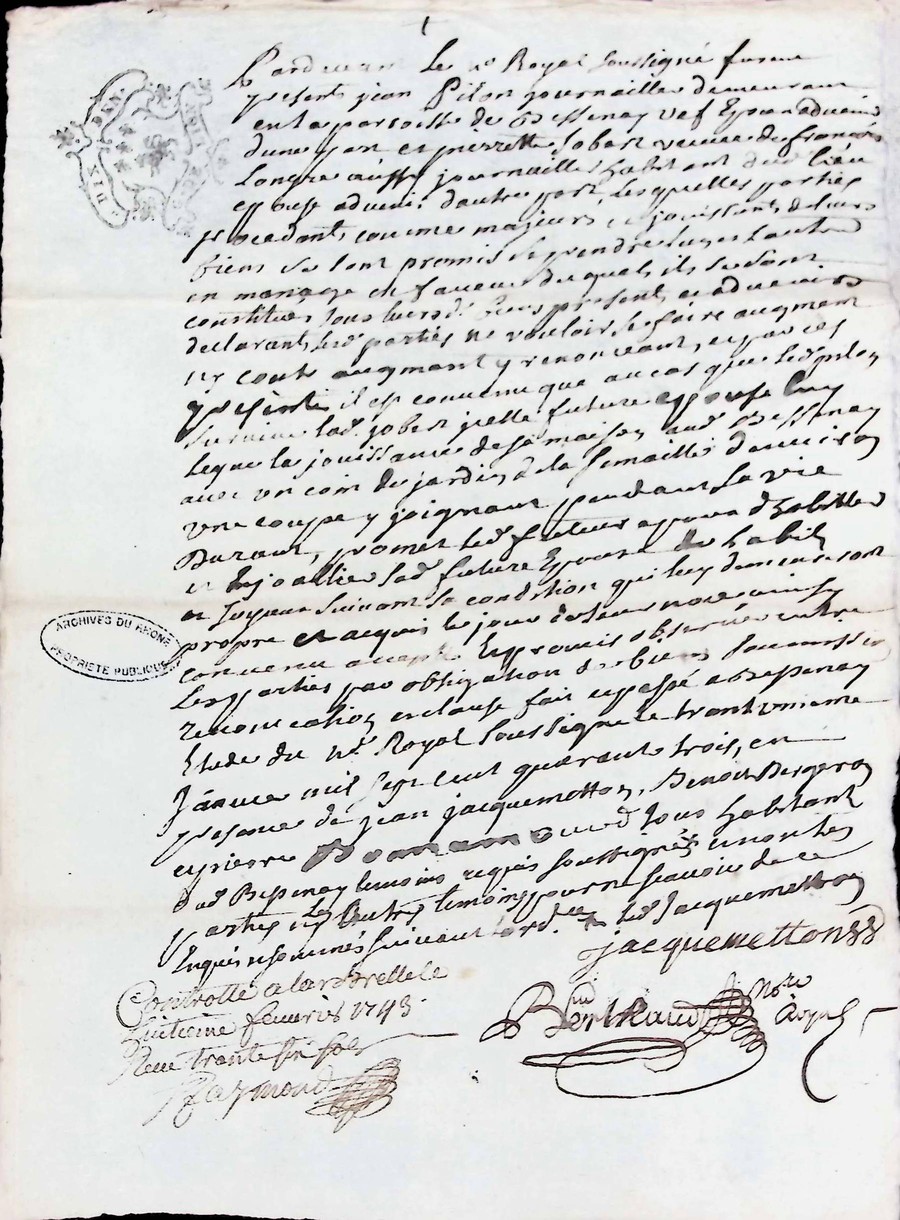 Pardevant le no. Royal soussigné furent
presents jean Pilon journaillier demeurant
en la paroisse de Bessenay vef Epoux advenir
dune part et pierrette Jobert veuve de françois
Longre aussi journaillier habitant dud. lieu
epouse advenir dautre part, lesquelles parties
procedants comme majeurs et jouissants de leurs
biens se sont promis se prendre lun et lautre
en mariage en faveur duquel ils se sont
constitues tous leurs d. biens presents et advenirs
declarant lesd. parties ne vouloir se faire augment
ny contre augment y renonceant, et par ces
presentes il est convenu que au cas que led. pilon
survive lad. jobert icelle future epouse luy
legue la jouissance de sa maison aud. Bessenay
avec un coin de jardin de la semaille denviron
une coupe y joignant pendant sa vie
Durant, promet led. futeur epoux d'habiller
et Enjoaillier sad. future Epouse de habits
et Joyeux suivant sa condition qui luy demeureront
propre et acquis le jour de leur noce ainsy
convenu accepté Et promis observé entre
Les parties par obligation de biens soumission
renonciation et clause fait et passé a Bessenay
Etude du no. Royal soussigné le trant unieme
Janvier mil sept cent quarant trois, en
presence de jean jacquemetton, Benoit Bergeron
et pierre tous habitant
dud. Bessenay temoins requis soussignés et non les
parties ny Lautres temoins pour ne scavoir de ce
Enquis et sommés suivant Lord.ce led. Jacquemetton
jacquemetton
Controllé a larbrelle le
huitieme fevrier 1743.
Reçu trante six sols
Raymond
Bertraud Nore
Royal
DIX DEN.
ARCHIVES DU RHONE
PROPRIETE PUBLIQUE